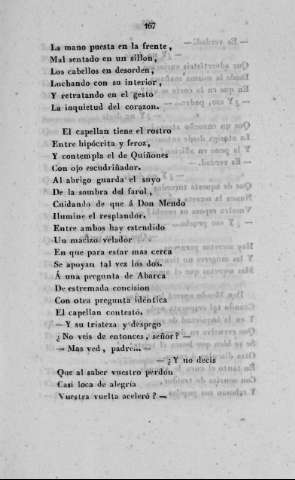 167
La mano puesta en la frente,
Mal sentado en un sillon,
Los cabellos en desorden,
Luchando con su interior,
Y retratando en el gesto
La inquietud del corazon.
El capellan tiene el rostro
Entre hipócrita y feroz,
Y contempla el de Quiñones
Con ojo escudriñador.
Al abrigo guarda el suyo
De la sombra del farol,
Cuidando de que á Don Mendo
Ilumine el resplandor.
Entre ambos hay estendido
Un macizo velador
En que para estar mas cerca
Se apoyan tal vez los dos.
Á una pregunta de Abarca
De estremada concision
Con otra pregunta identica
El capellan contestó.
— Y su tristeza y despego
¿No veis de entonces, señor? —
— Mas ved, padre... —
— ¿Y no decis
Que al saber vuestro perdon
Casi loca de alegría
Vuestra vuelta aceleró? —